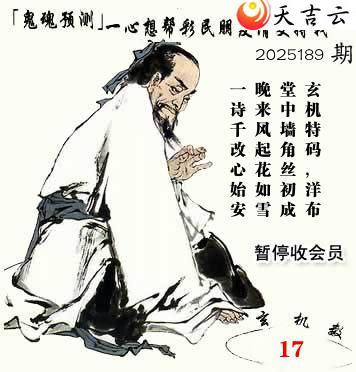 天吉云
「鬼魂预测」一心想帮彩民朋
2025189 期
玄机特码，洋布
堂中墙角丝初成
晚来风起花如雪
一诗千改心始安
暂停收会员
玄机
17